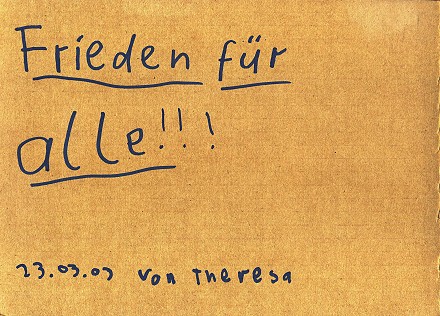 Frieden für
alle!!!
23.03.03 von Theresa